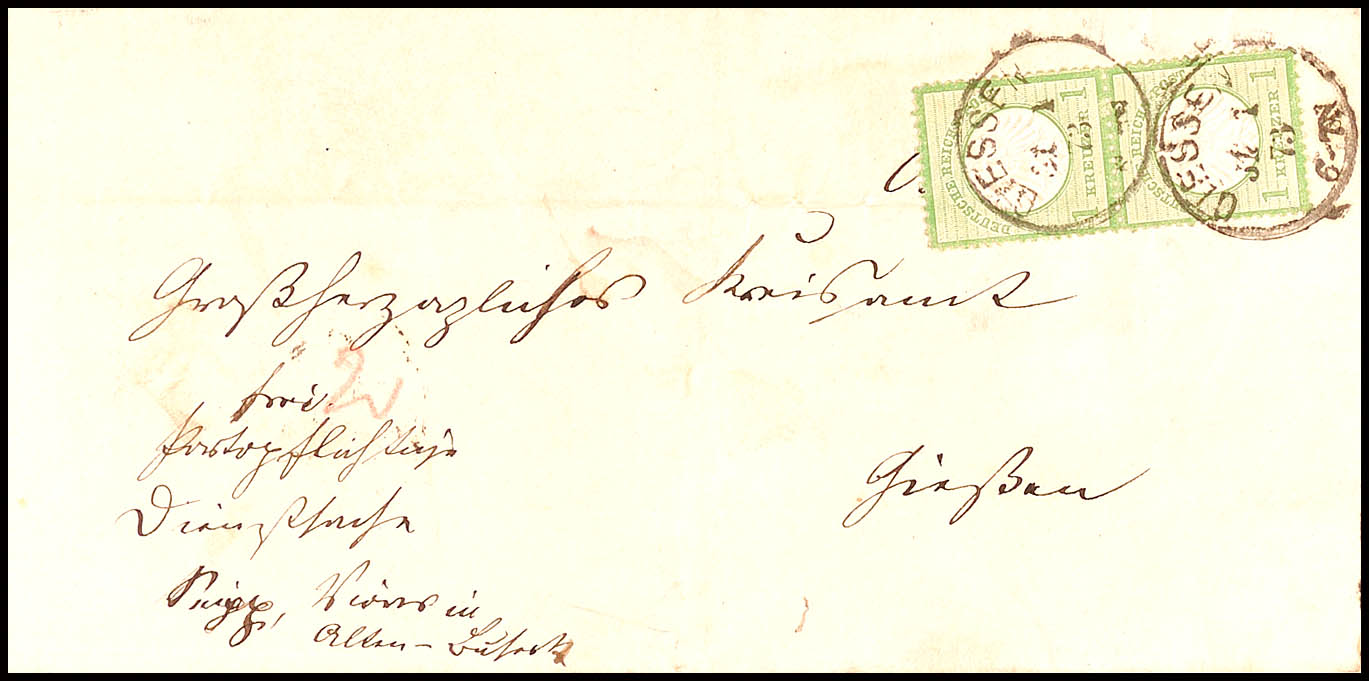 DEUTSCHE REICHS-POST 1 KREUZER 1
DEUTSCHE REICHS-POST 1 KREUZER 1
GIESSEN
1
73
GIESSEN
1
73
6-7N
An
Großherzogliches Kreisamt
frei
2
Portopflichtige
Dienstsache
Gießen
in
Alten-Buseck